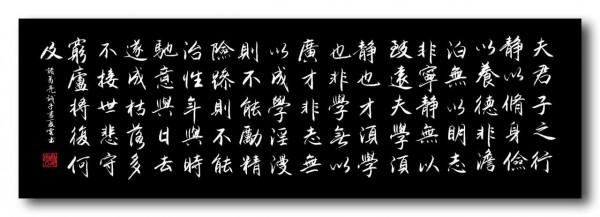 夫君子之行
静以脩身儉
以養德非澹
泊無以明志
非寧静無以
致遠夫學須
静也才須學
也非學無以
廣才非志無
以成學淫漫
則不能勵精
險躁則不能
治性年與時
馳意與日去
遂成枯落多
不接世悲守
窮廬將復何
及
諸葛亮誡子書